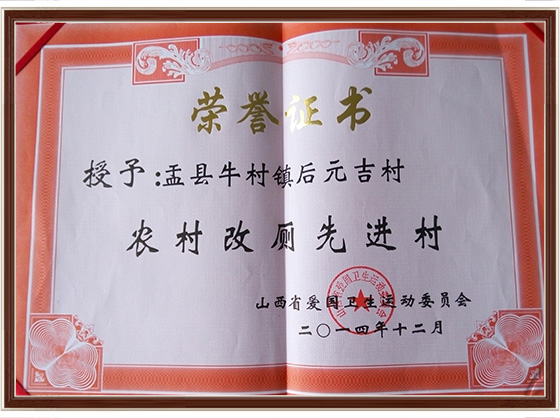 荣誉证书
授予:盂县牛村镇后元吉村
农村改厕先进村
山西省爱国卫生运动委员会
二〇一四年十二月